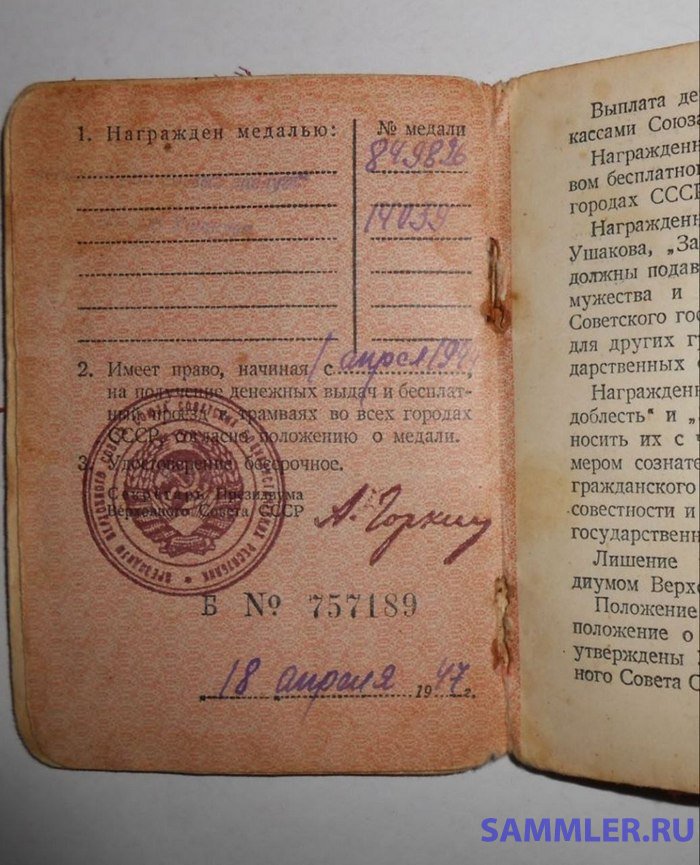 1. Награжден медалью: № медали
849826
14039
2. Имеет право, начиная с 1 апрел 194
на получение денежных выдач и бесплат-
ный проезд в трамваях во всех городах
СССР, согласно положению о медали.
3. Удостоверение бессрочное.
Секретарь Президиума
Верховного Совета СССР
А. Горкин
Б № 757189
18 апреля 1947 г.
Выплата де
кассами Союза
Награжденн
вом бесплатног
городах СССР
Награжденн
Ушакова, „За
должны подав
мужества и
Советского гос
для других гр
дарственных
Награжденн
доблесть" и „
носить их с ч
мером сознате
гражданского
совестности и
государственн
Лишение
диумом Верхо
Положение
положение о
утверждены
ного Совета С
SAMMLER.RU